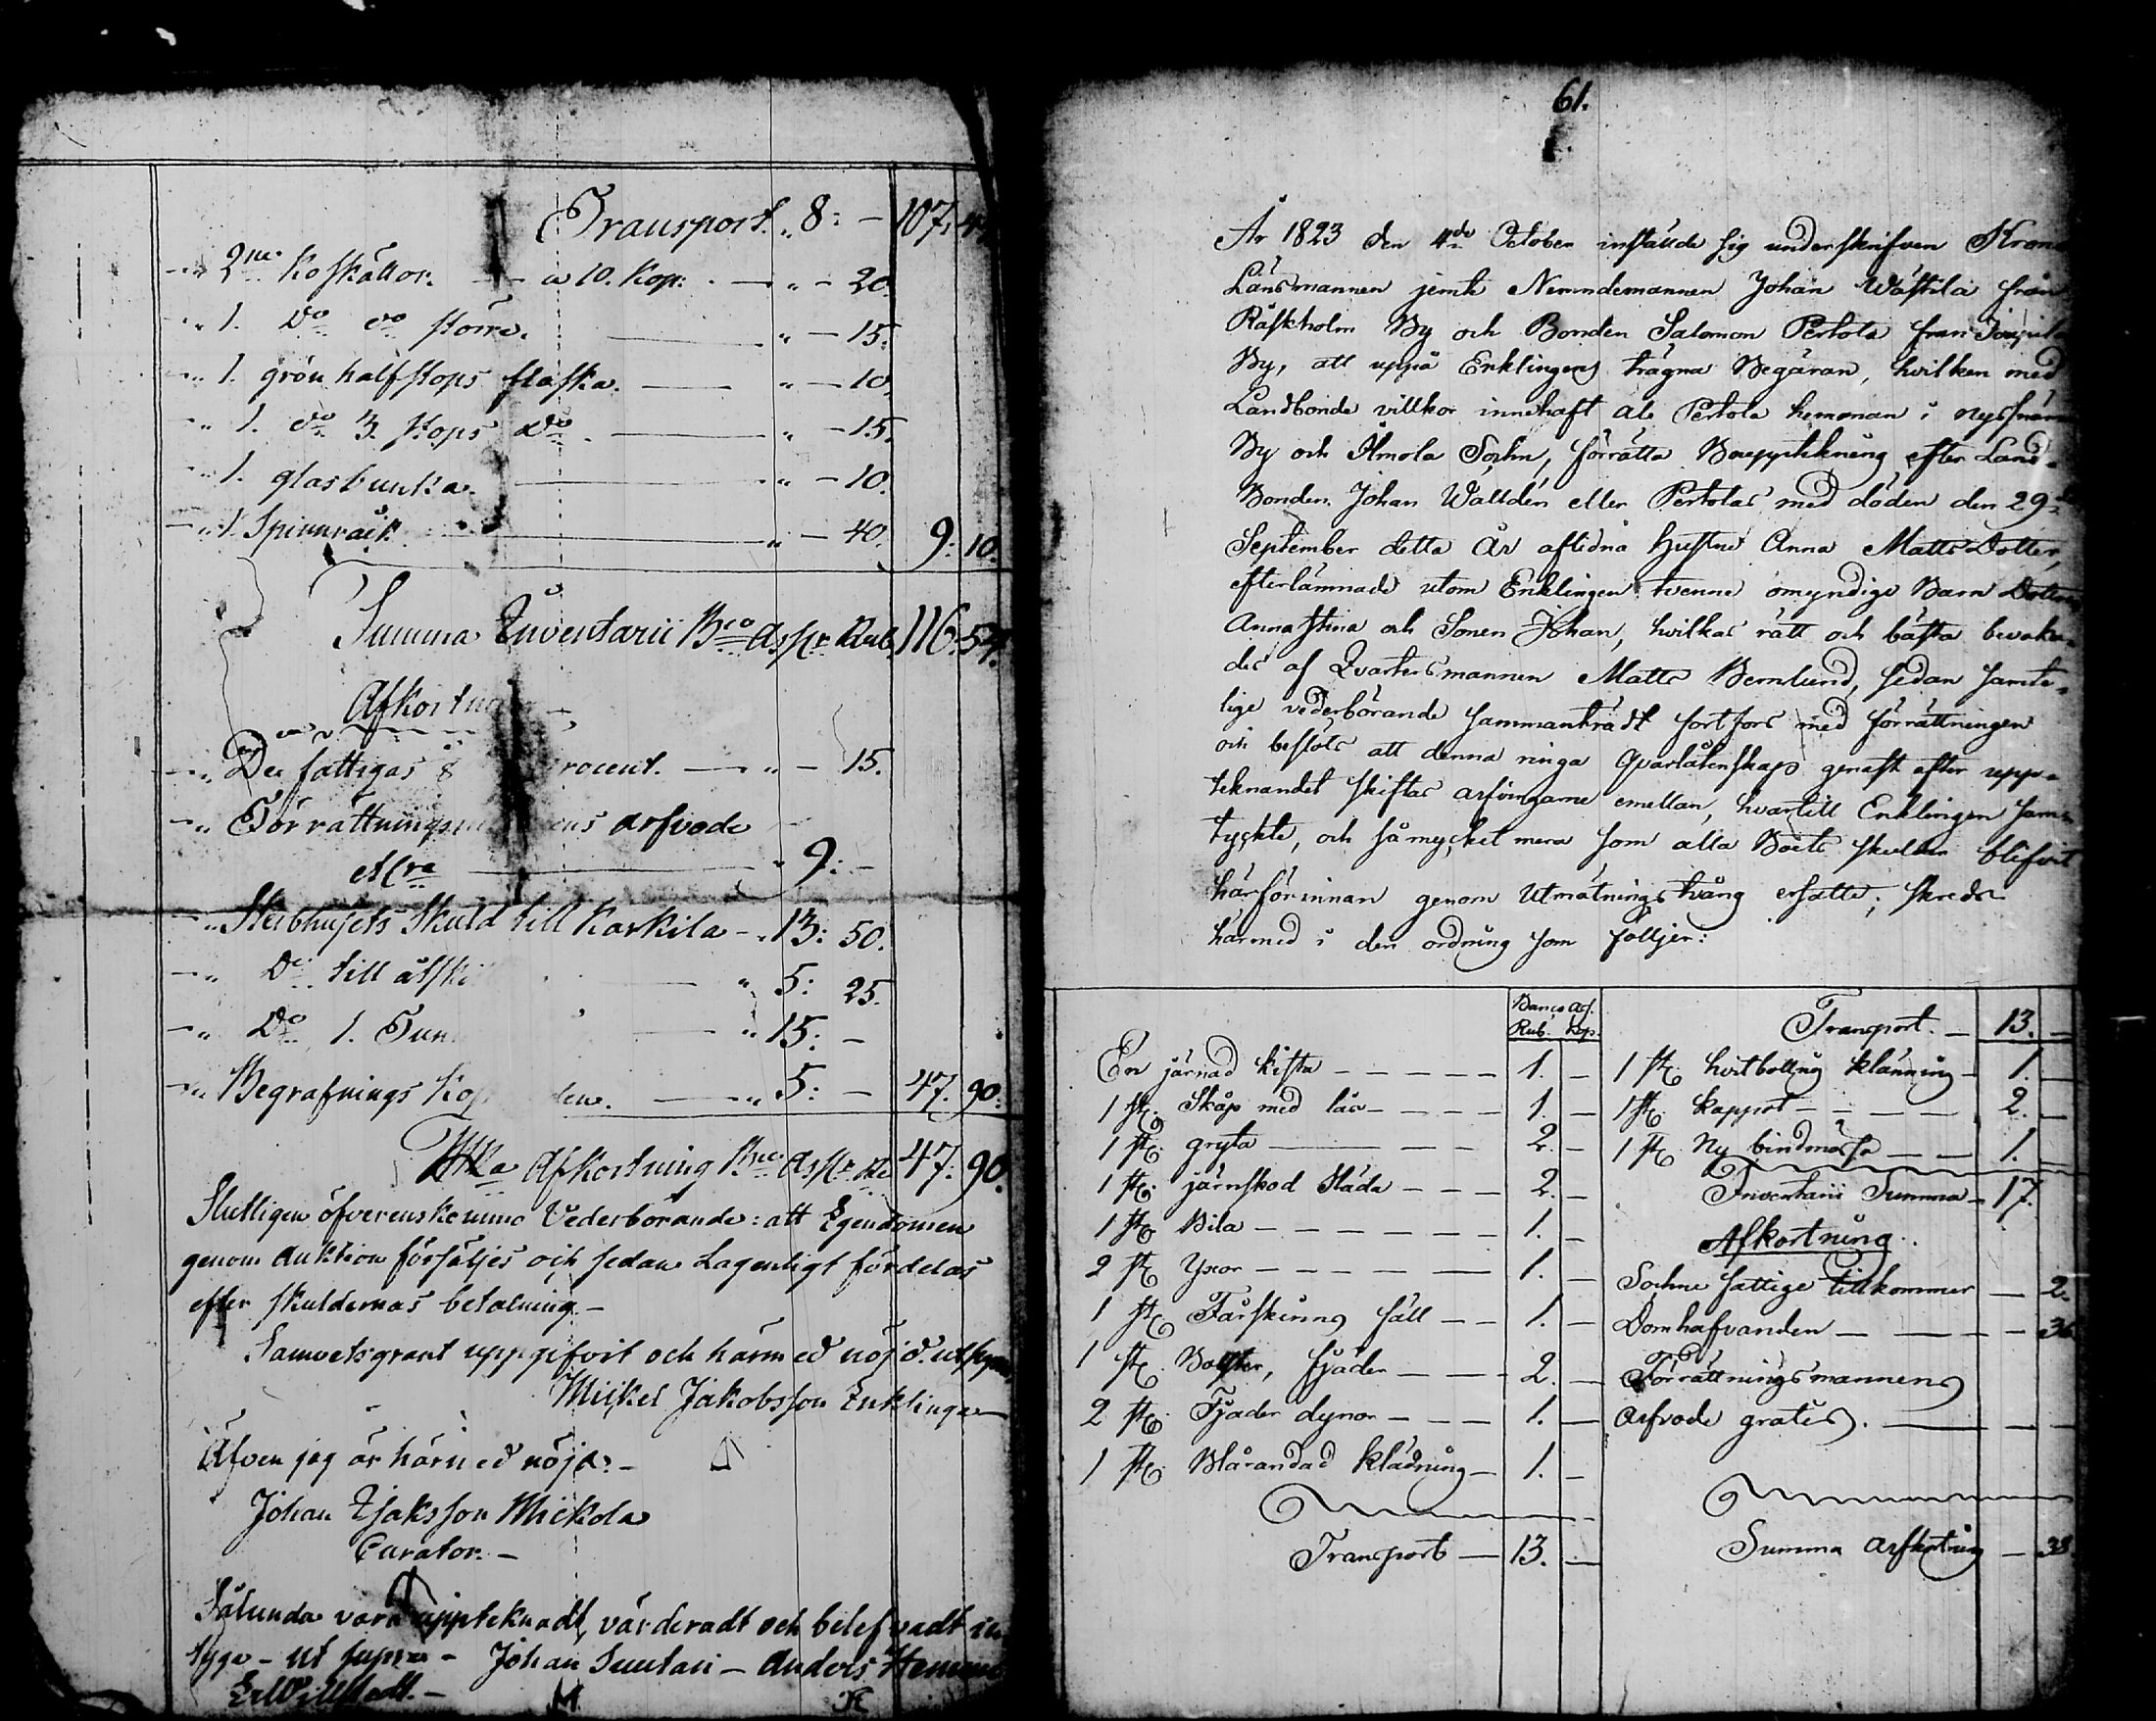 Transport. " 8: — 107: 44
—" 2ne Koskällor. — a 10. Kop: — " — 20.
—" 1. Do do större. — " — 15.
—" 1. grön halfstops flaska. — " — 10.
—" 1. do 3. stops do. — " — 15.
—" 1. glasbunka. — " — 10.
—" 1. Spinnråck — " — 40. 9: 10.
Summa Inventarii Bco Assr Rub. 116: 54.
Afkortn
—" De fattigas 8 rocent. — " — 15.
—" Förrättningsm ens arfvode
M:ra — " 9: —
—" Sterbhusets Skuld till Karkila — " 13: 50.
—" Do till åtski — " 5: 25.
—" Do 1. Tun — " 15: —
—" Begrafnings Kos den. — " 5: — 47. 90.
Afkortning Bco Assr Ru 47: 90.
Slutligen öfverenskommo Vederbörande: att Egendomen
genom Auktion försäljes och sedan Lagenligt fördelas
efter skuldernas betalning. —
Samvetsgrant uppgifvit och härmed nöjd. ut supra
Mickel Jakobsson Enklinge
Äfven jeg är härmed nöjd: —
Johan Isaksson Mickola
Curator. —
Sålunda vara uppteknadt, värderadt och belefvadt in
tyga — ut supra — Johan Luutari — Anders Hemm
61.
År 1823 den 4de October inställde sig underskrifven Krono
Länsmannen jemte Nemndemannen Johan Wästila från
Räfkholm By och Bonden Salomon Pertola från Jouppila
By, att uppå Enklingens trägna Begäran, hvilken med
Landbonde villkor innehaft ale Pertola hemman i nyssnämn
By och Ilmola Sochn, förrätta Bouppteckning efter Land-
Bonden Johan Walldén eller Pertolas med döden den 29de
September detta År aflidna Hustru Anna Matts Dotter,
efterlämnade utom Enklingen tvenne omyndige Barn Dottren
Anna Stina och Sonen Johan, hvilkas rätt och bästa bevaka-
des af Qvartersmannen Matts Bernlund, sedan samte-
lige vederbörande sammanträdt fortfors med förrättningen
och beslöts att denna ringa Qvarlåtenskap genast efter upp-
teknandet skiftas arfvingarne emellan, hvartill Enklingen sam-
tyckte, och så mycket mera som alla Boets skulder blifvit
härförinnan genom Utmätnings tvång ersatte; skreds
härmed i den ordning som följer:
Banco Ass.
Rub. Kop.
En järnad kista — 1. —
1 st. Skåp med lås — 1. —
1 st. gryta — 2. —
1 st. järnskod Släda — 2. —
1 st. Bila — 1. —
2 st. Yxor — 1. —
1 st. Fårskinns fäll — 1. —
1 st. Bolster, fjäder — 2. —
2 st. Fjäder dynor — 1. —
1 st. Blårandad klädning — 1. —
Transport — 13. —
Transport. — 13. —
1 st. hvitbottnig klänning — 1. —
1 st. kappot — 2. —
1 st. Ny bindmössa — 1. —
Inventarii Summa — 17.
Afkortning.
Sochne fattige tillkommer — 2.
Domhafvanden — 36
Förrättningsmannens
Arfvode gratis. —
Summa Afkortning — 38